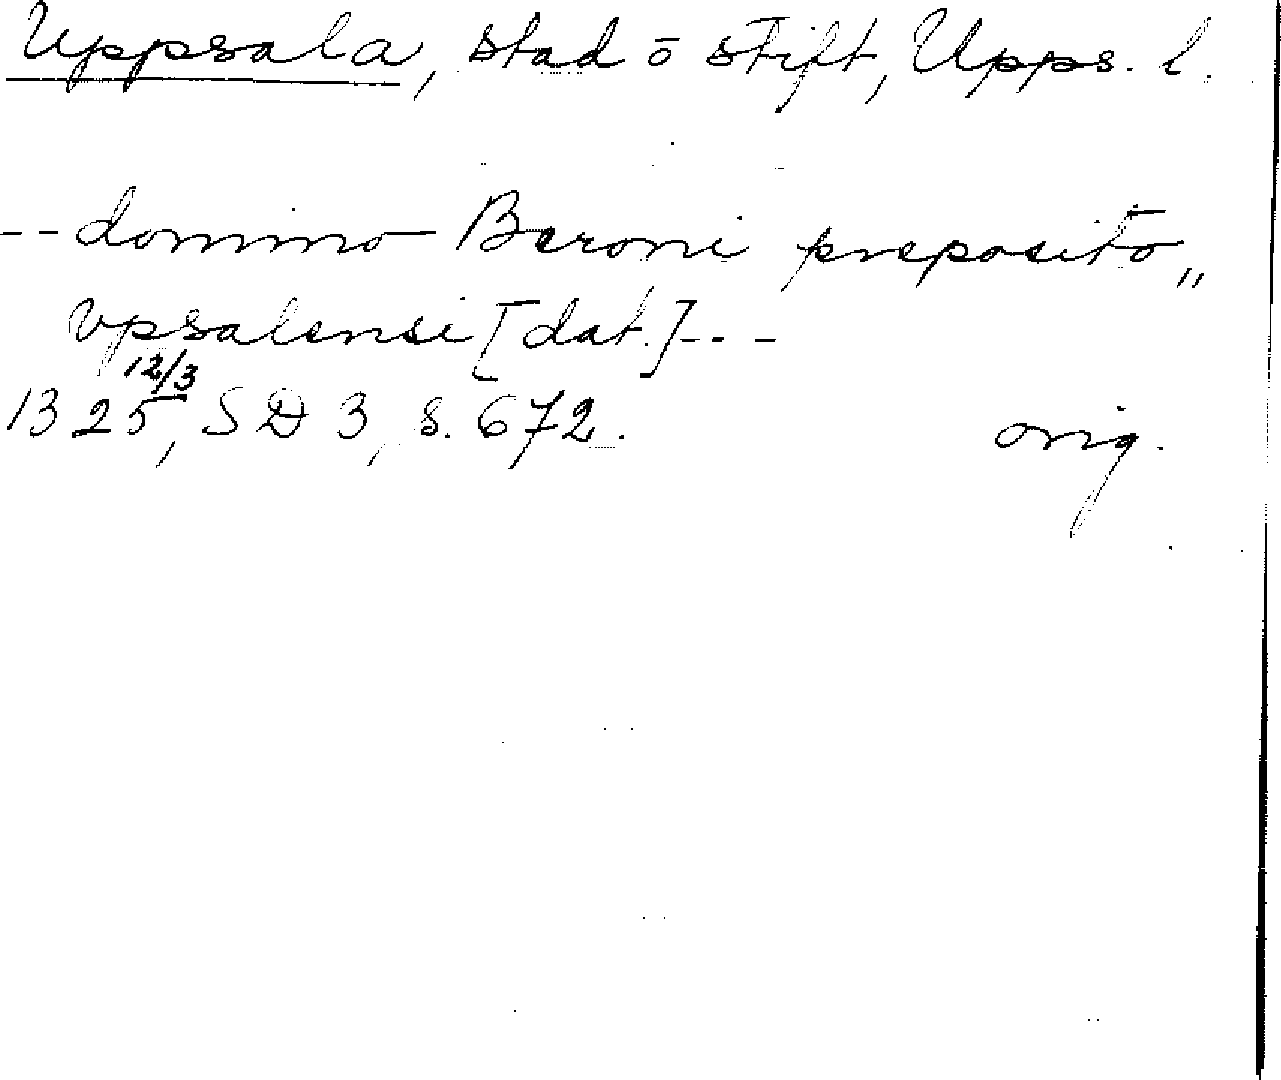 Uppsala, stad o stift, Upps. l.
-- domino Beroni preposito „
vpsalensi [dat.] - - -
1325 12/3, SD 3, s. 672. orig.